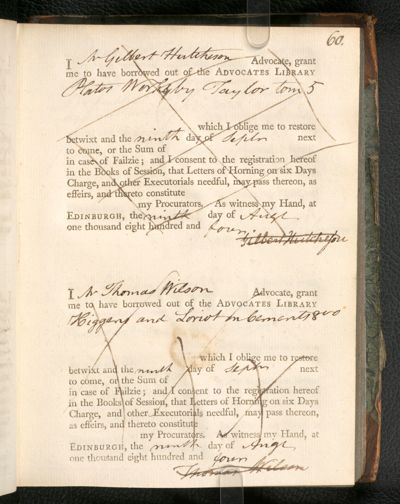 60.
I Mr Gilbert Hutcheson Advocate, grant
me to have borrowed out of the ADVOCATES LIBRARY
Platos Works by Taylor tom 5
which I oblige me to restore
betwixt and the ninth day of Septr next
to come, or the Sum of
in case of Failzie; and I consent to the registration hereof
in the Books of Session, that Letters of Horning on six Days
Charge, and other Executorials needful, may pass thereon, as
effeirs, and thereto constitute
my Procurators. As witness my Hand, at
EDINBURGH, the ninth day of Augt
one thousand eight hundred and four
Gilbert Hutcheson
I Mr Thomas Wilson Advocate, grant
me to have borrowed out of the ADVOCATES LIBRARY
Higgens and Loriot on Cements 1800
which I oblige me to restore
betwixt and the ninth day of Septr next
to come, or the Sum of
in case of Failzie; and I consent to the registration hereof
in the Books of Session, that Letters of Horning on six Days
Charge, and other Executorials needful, may pass thereon,
as effeirs, and thereto constitute
my Procurators. As witness my Hand, at
EDINBURGH, the ninth day of Augt
one thousand eight hundred and four
Thomas Wilson